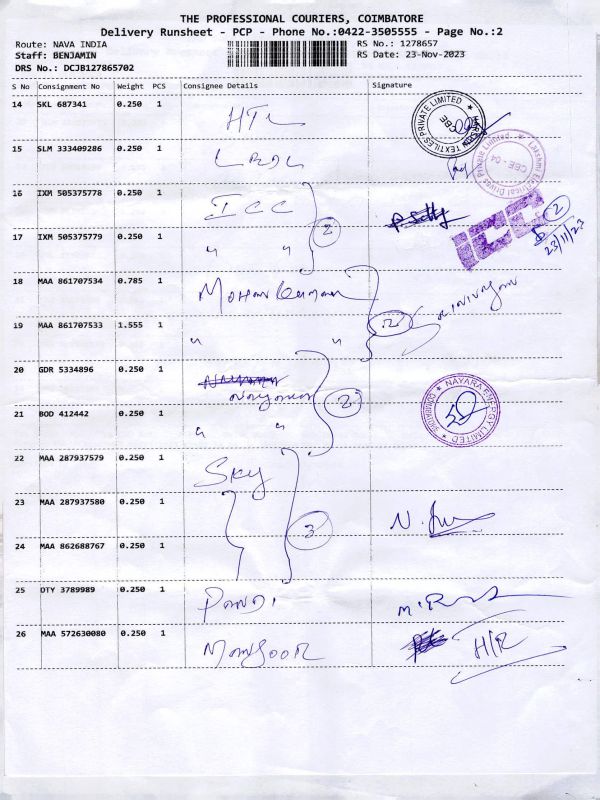 THE PROFESSIONAL COURIERS, COIMBATORE
Delivery Runsheet - PCP - Phone No.:0422-3505555 - Page No.:2
Route: NAVA INDIA
RS No.: 1278657
Staff: BENJAMIN
RS Date: 23-Nov-2023
DRS No.: DCJB127865702
S No Consignment No Weight PCS Consignee Details Signature
14 SKL 687341 0.250 1
TEXTILES PRIVATE LIMITED CBE
15 SLM 333409286 0.250 1
Lakshmi Electrical Drives Private Limited CBE - 04
16 IXM 505375778 0.250 1 ICC 2
ICC 2
23/11/23
17 IXM 505375779 0.250 1 " "
18 MAA 861707534 0.785 1 Mohan Kumar 2
19 MAA 861707533 1.555 1 " "
20 GDR 5334896 0.250 1 Nayara 2
NAYARA ENERGY LIMITED
21 BOD 412442 0.250 1 " "
22 MAA 287937579 0.250 1 Sky
23 MAA 287937580 0.250 1 3
24 MAA 862688767 0.250 1
25 DTY 3789989 0.250 1
26 MAA 572630080 0.250 1 Mansoor H/R